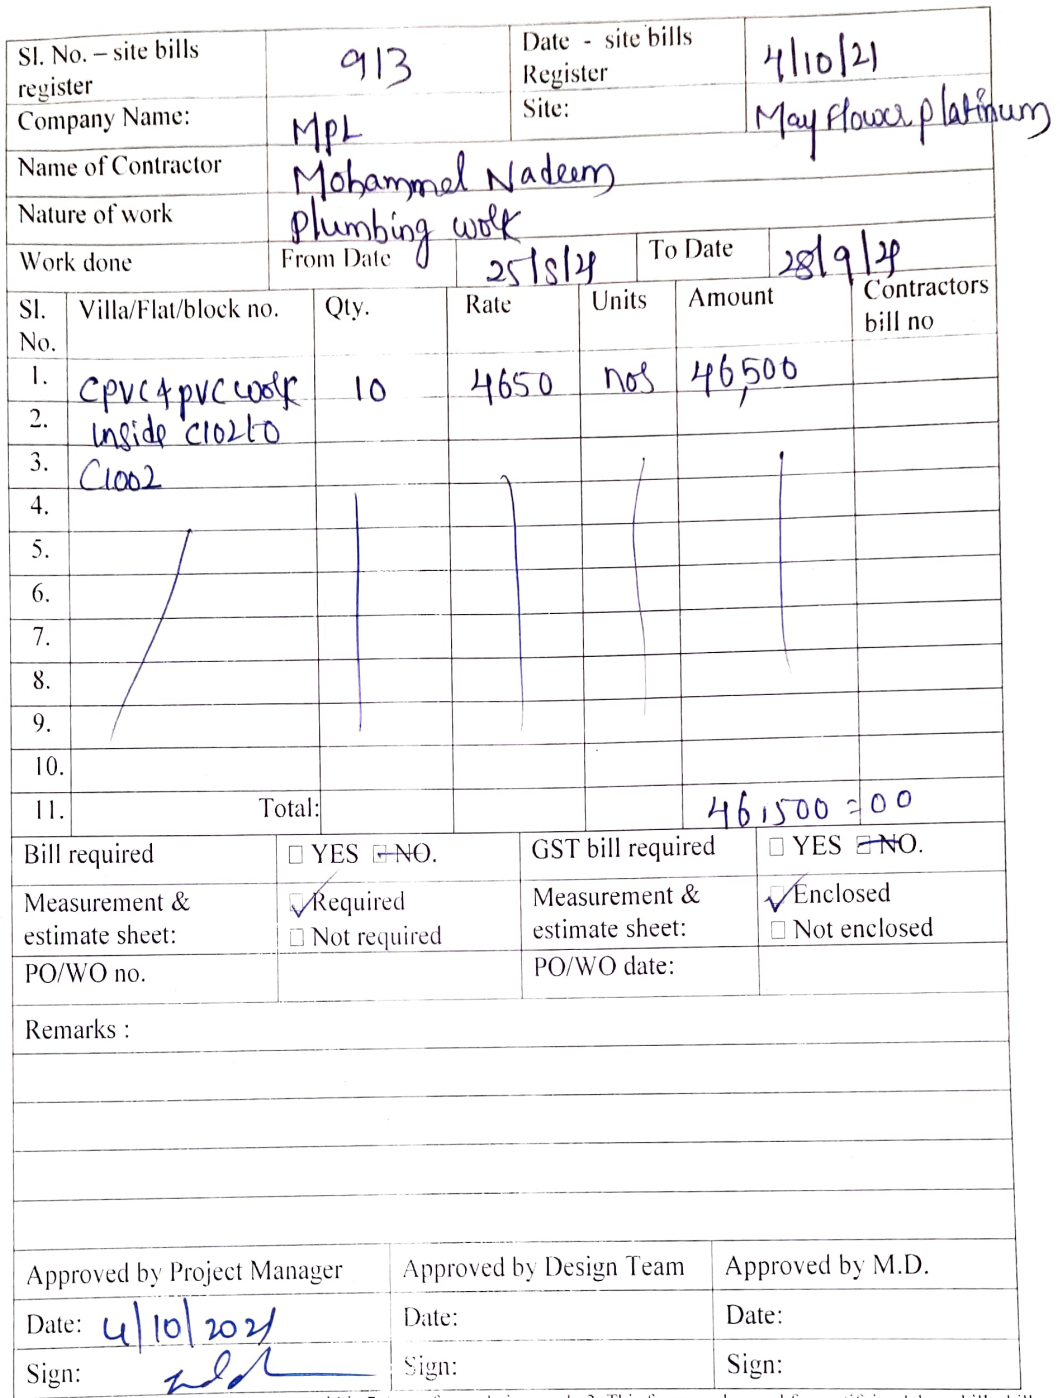 Sl. No. – site bills register 913 Date - site bills Register 4/10/21
Company Name: MPL Site: May Flower platinum
Name of Contractor Mohammel Nadeem
Nature of work Plumbing work
Work done From Date 25/8/21 To Date 28/9/21
Sl. No. Villa/Flat/block no. Qty. Rate Units Amount Contractors bill no
1. CPVC & PVC work 10 4650 nos 46,500
2. inside C102 to
3. C1002
4.
5.
6.
7.
8.
9.
10.
11. Total: 46,500=00
Bill required □ YES □ NO. GST bill required □ YES □ NO.
Measurement & estimate sheet: ✓ Required Measurement & estimate sheet: ✓ Enclosed
□ Not required □ Not enclosed
PO/WO no. PO/WO date:
Remarks :
Approved by Project Manager Approved by Design Team Approved by M.D.
Date: 4/10/2021 Date: Date:
Sign: Sign: Sign: